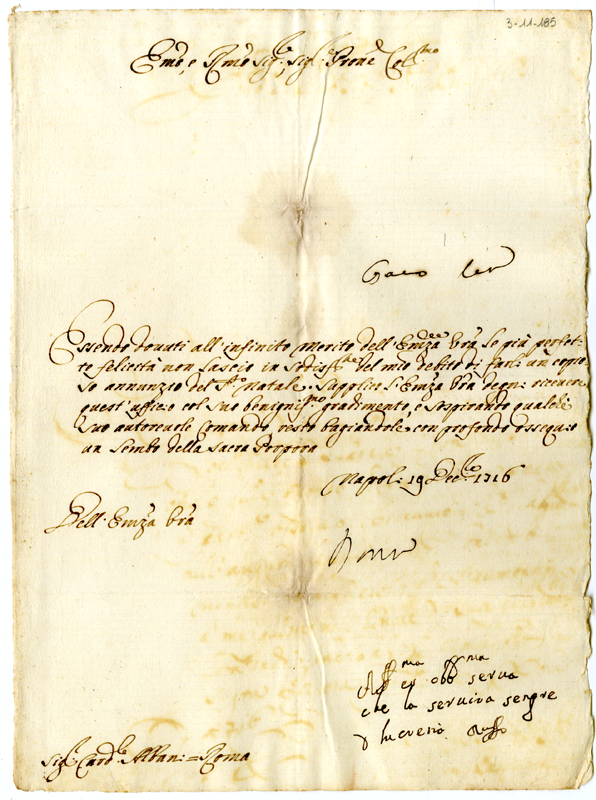 3-11-185
Emo, e Rmo Sig.re, Sig.r Prone Col.mo
Essendo douuti all'infinito Merito dell'Emza Vra le più perfet-
te felicità non lascio in sodisf.ne del mio debito di farli un copio-
so annunzio del S.to Natale. Supplico l'Emza Vra degni riceuere
quest'ufficio col suo benignis.mo gradimento, e sospirando qualche
suo autoreuole Comando resto baciandole con profondo ossequio
un lembo della Sacra Porpora
Napoli 19 Dec.bre 1716
Dell'Emza Vra
Roma
ser.ua
che la seruirà sempre
Sig.r Card.le Albani = Roma